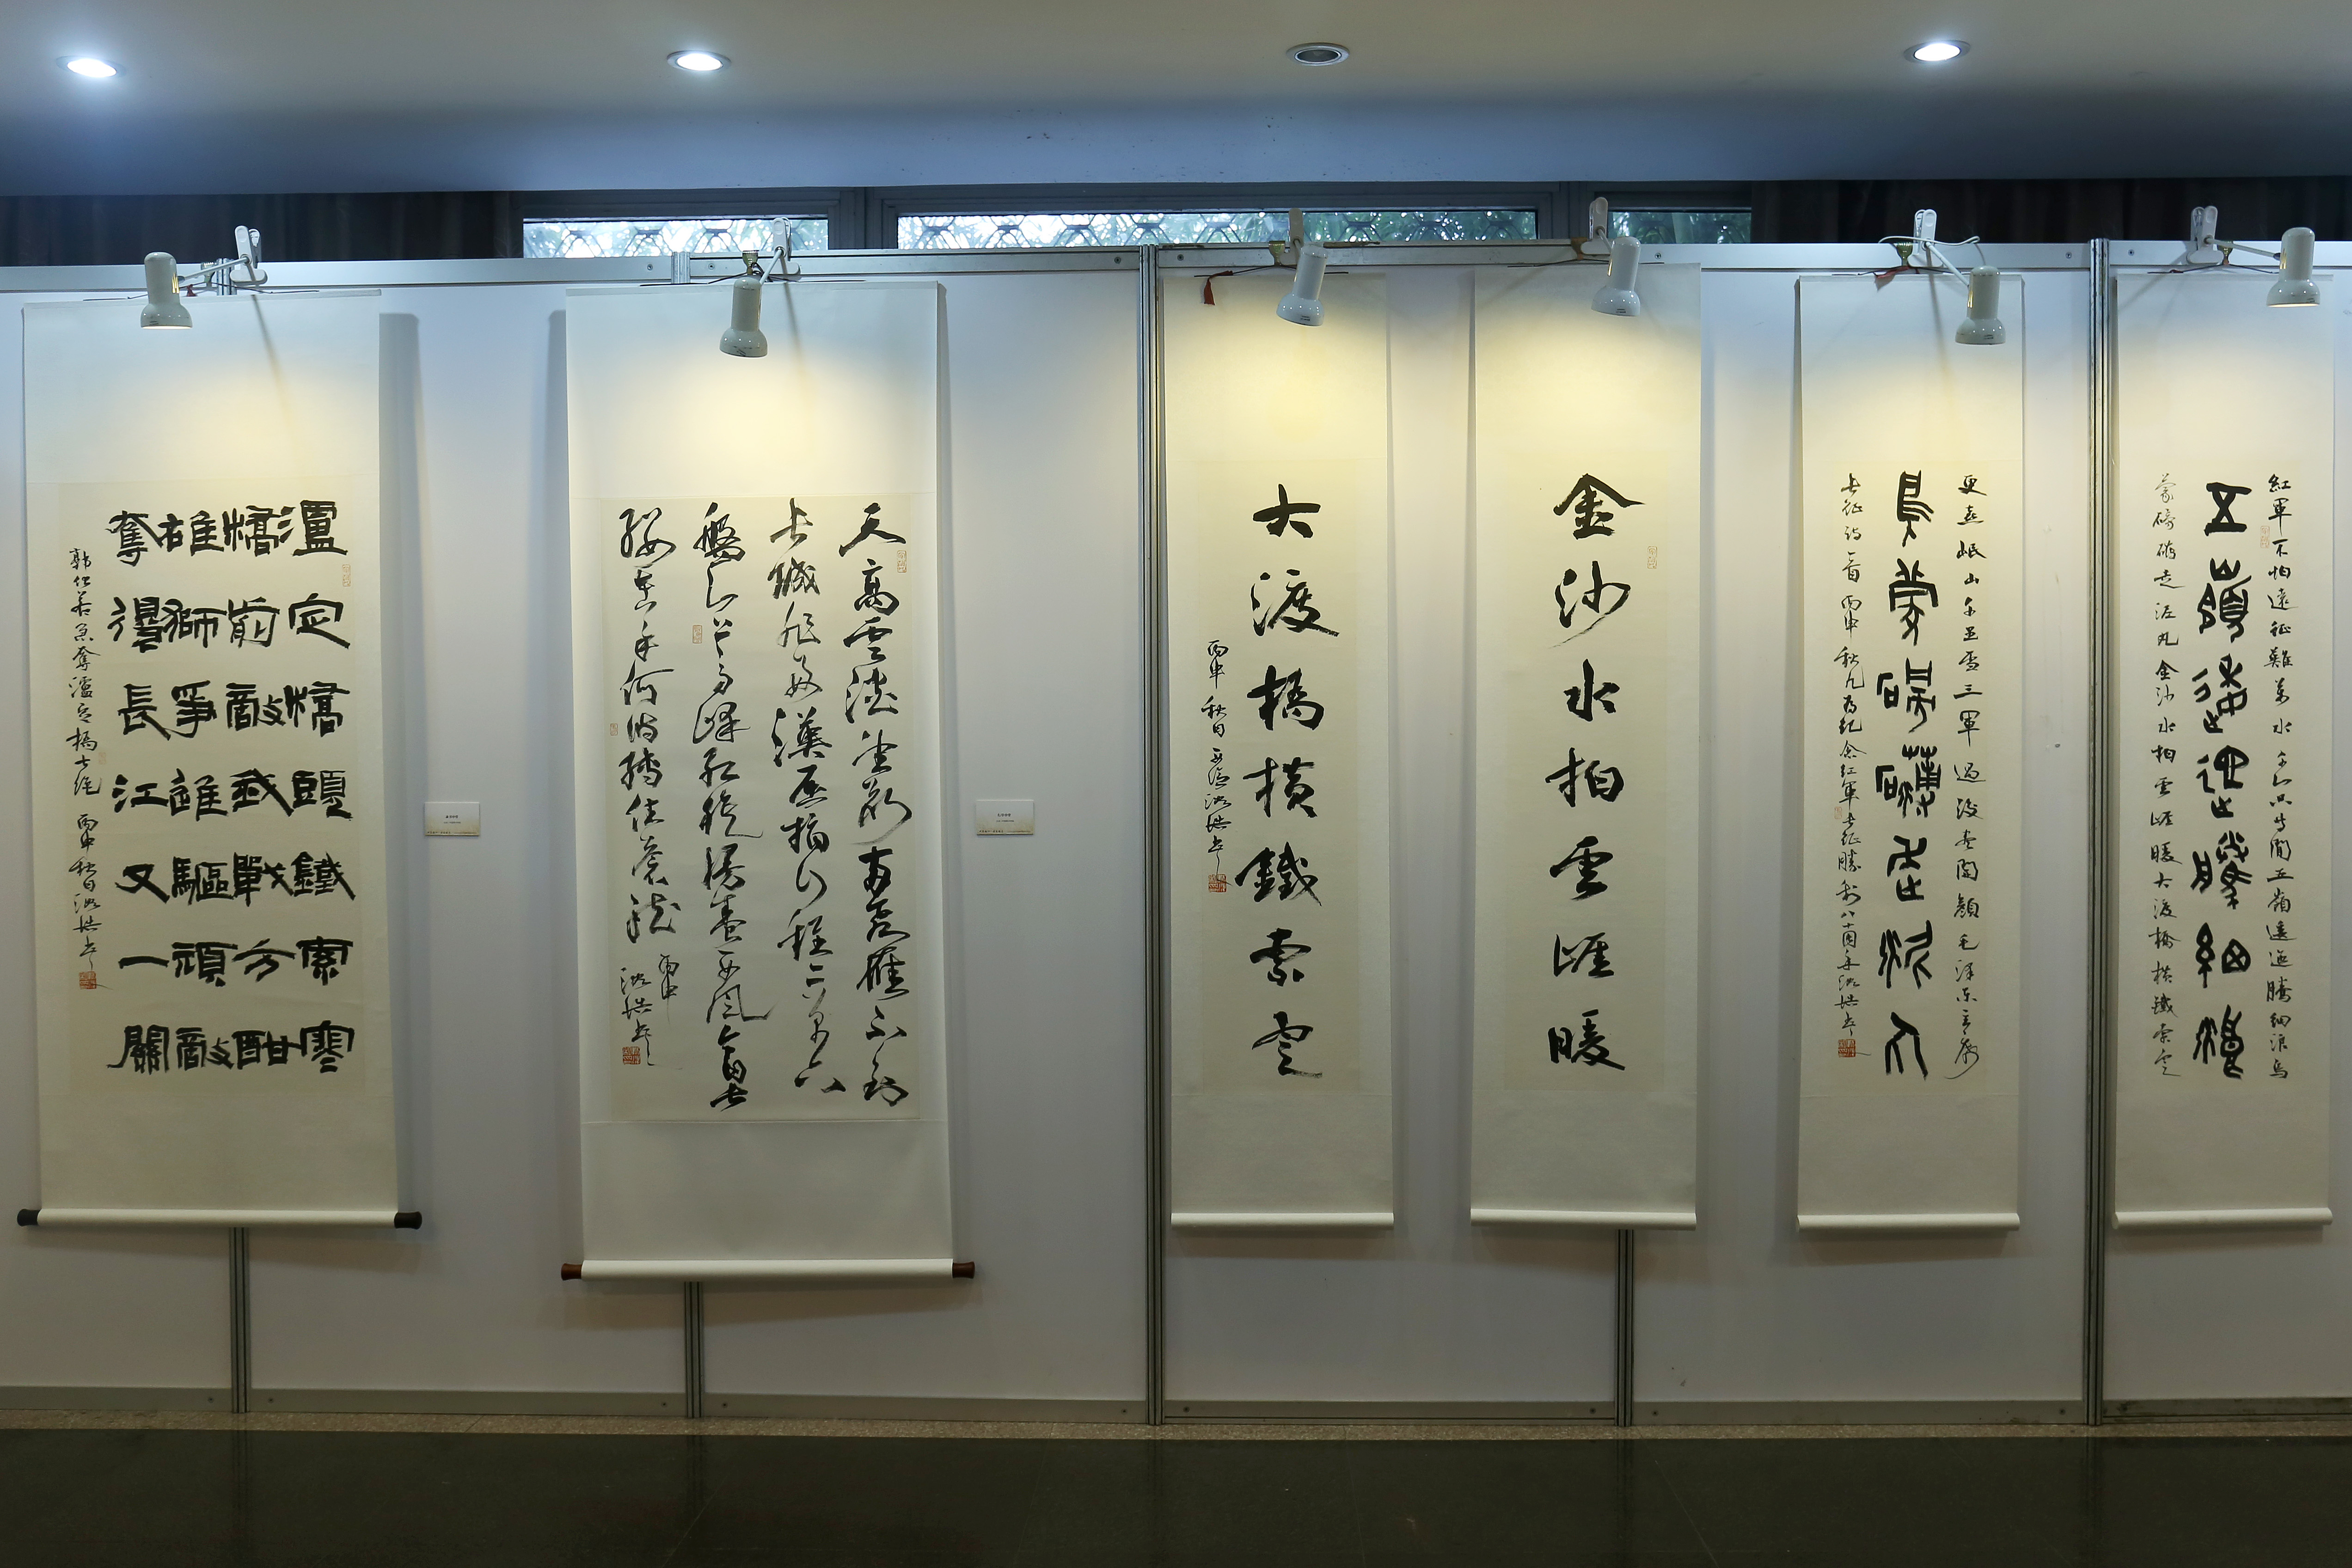 紅軍不怕遠征難萬水千山只等閒五嶺逶迤騰細浪烏
五嶺逶迤騰細浪
蒙磅礴走泥丸金沙水拍雲崖暖大渡橋橫鐵索寒
更喜岷山千里雪三軍過後盡開顏毛澤東主席
烏蒙磅礴走泥丸
長征詩一首丙申秋月為紀念紅軍長征勝利八十周年書
金沙水拍雲崖暖
大渡橋橫鐵索寒
丙申秋日書
天高雲淡望斷南飛雁不到
長城非好漢屈指行程二萬六
盤山上高峰紅旗漫卷西風今日長
纓在手何時縛住蒼龍
丙申
書
瀘定橋頭鐵索寒
橋前敵我戰方酣
雄獅爭誰驅頑敵
奪得長江又一關
郭化若急奪瀘定橋七絕丙申秋日書